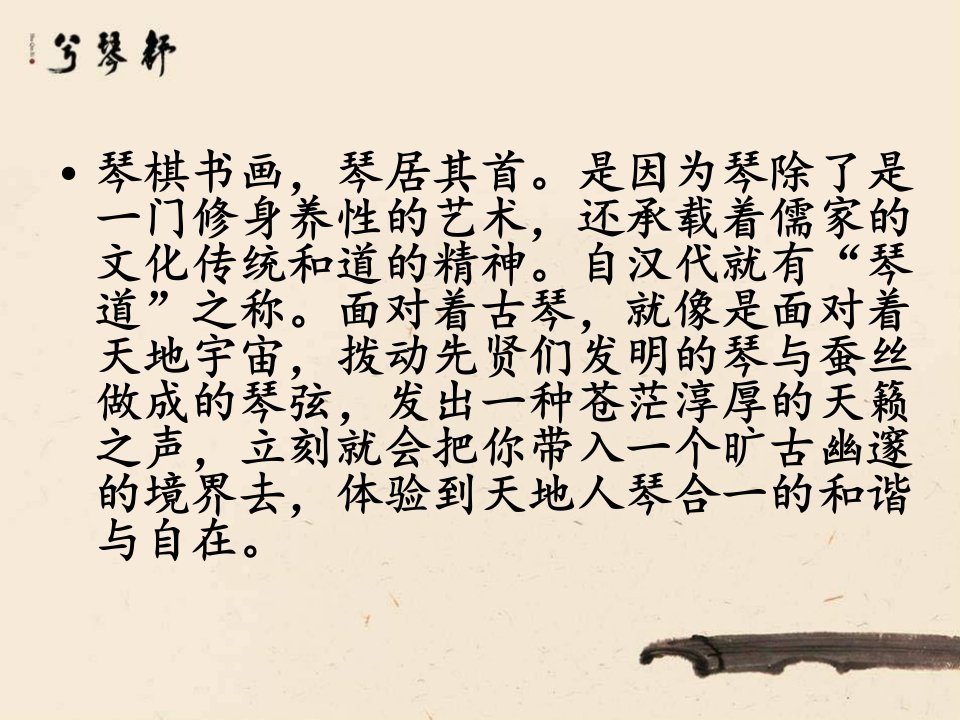 兮琴轩
• 琴棋书画，琴居其首。是因为琴除了是
一门修身养性的艺术，还承载着儒家的
文化传统和道的精神。自汉代就有“琴
道”之称。面对着古琴，就像是面对着
天地宇宙，拨动先贤们发明的琴与蚕丝
做成的琴弦，发出一种苍茫淳厚的天籁
之声，立刻就会把你带入一个旷古幽邃
的境界去，体验到天地人琴合一的和谐
与自在。